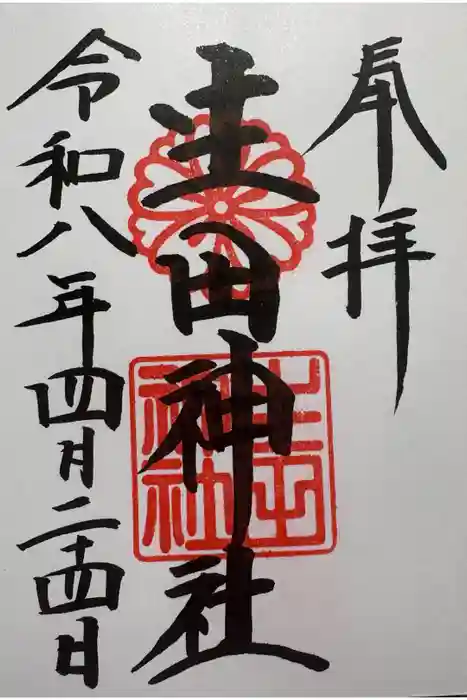 奉拝
生田神社
生田神社
令和八年四月二十四日